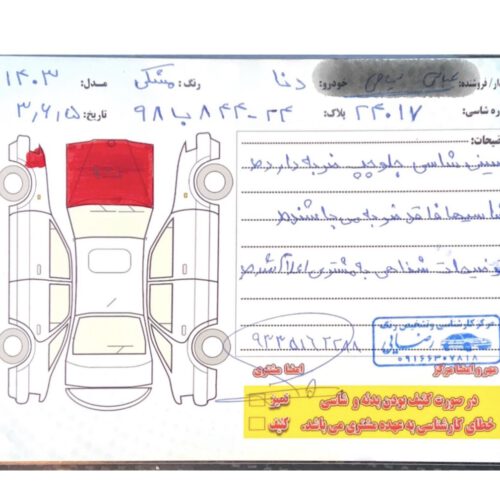 ار/فروشنده: خودرو: دنا رنگ: مشکی مدل: ۱۴۰۳
ره شاسی: ۲۴۰۱۷ پلاک: ۲۴-۸۴۴ ب ۹۸ تاریخ: ۳,۶,۱۵
ضیحات:
سینی شاسی جلو چپ ضربه دارد
شاسیها فاقد ضربه می باشند
توضیحات شفاهی به مشتری اعلام شد
مرکز کارشناسی و تشخیص رنگ
رضایی
۰۹۱۶۶۳۰۷۸۱۸
مهر و امضا مرکز
امضا مشتری
در صورت کثیف بودن بدنه و شاسی
خطای کارشناسی به عهده مشتری می باشد.
تمیز
کثیف